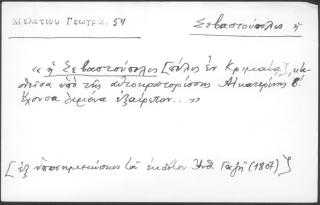 Μελετίου Γεωγρ. 54
Σεβαστούπολις ἡ
« ἡ Σεβαστούπολις [πόλις ἐν Κριμαίᾳ], κτι-
σθεῖσα ὑπὸ τῆς αὐτοκρατορίσσης Αἰκατερίνης β΄.
ἔχουσα λιμένα ἐξαίρετον... »
[ἐξ ὑποσημειώσεως τοῦ ἐκδότου Ἀνθ. Γαζῆ (1807)]